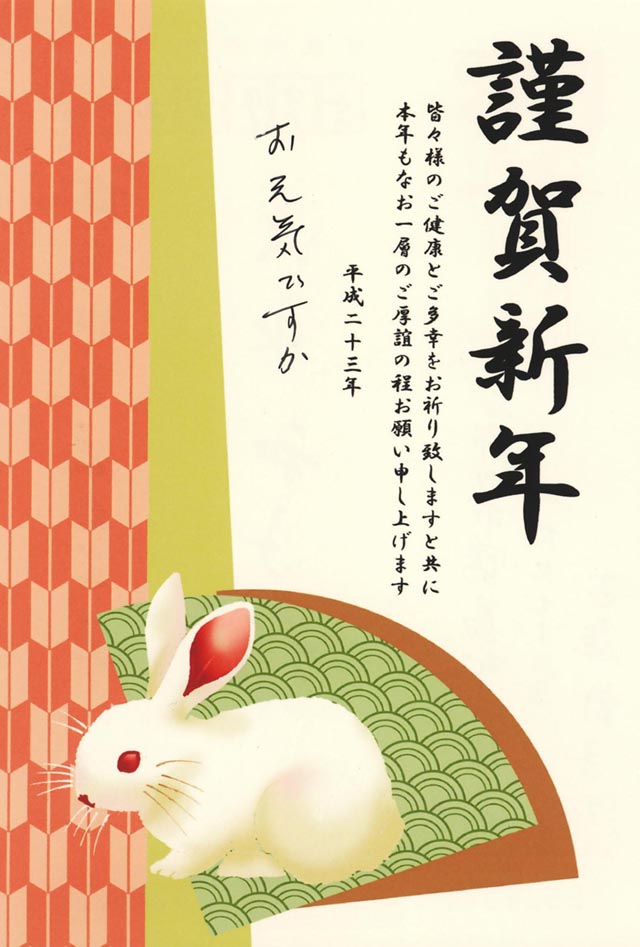 謹賀新年
皆々様のご健康とご多幸をお祈り致しますと共に
本年もなお一層のご厚誼の程お願い申し上げます
平成二十三年
お元気ですか